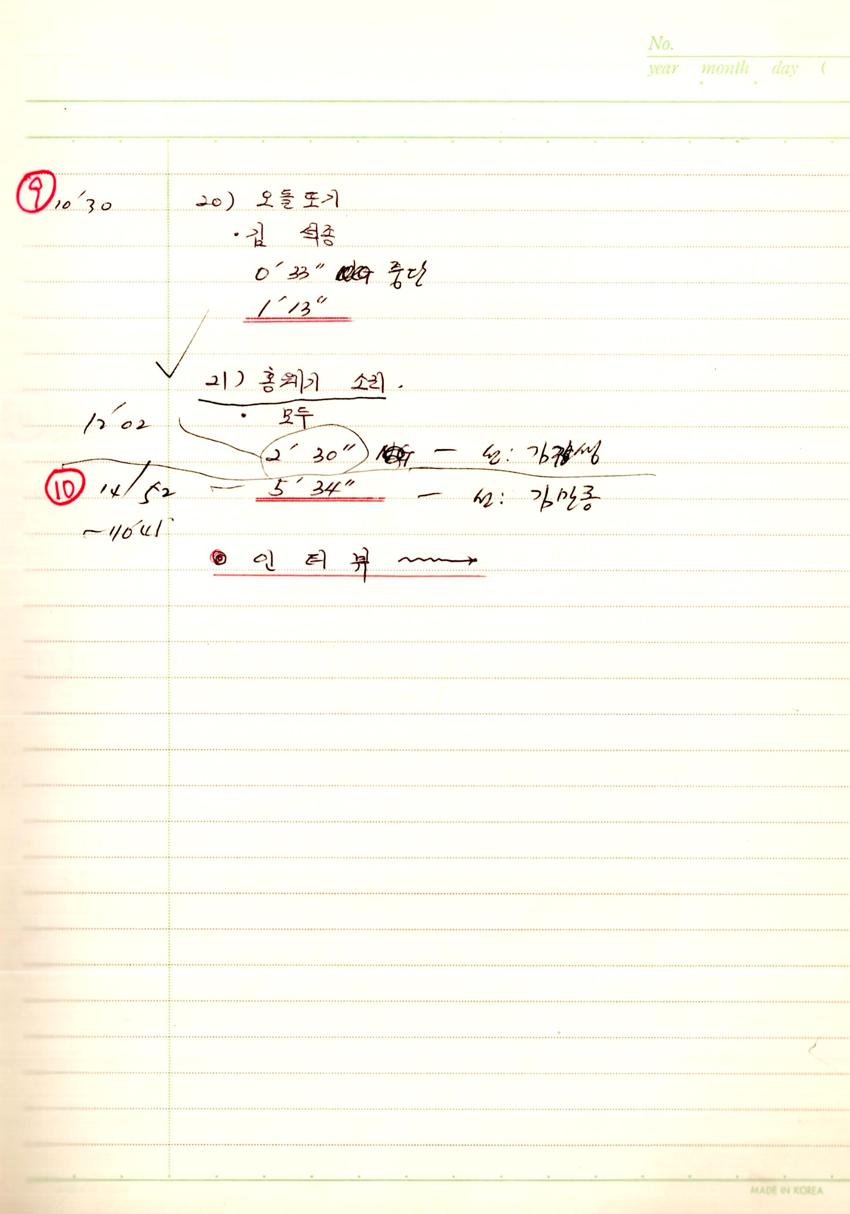 No.
year month day (
⑨ 10′30 20) 오돌또기
· 김 석종
0′33″ 중단
1′13″
21) 홍애기 소리.
· 모두
12′02
2′30″ — 선:
⑩ 14/52 — 5′34″ — 선: 김만종
~110′41″
◉ 인터뷰 →
MADE IN KOREA